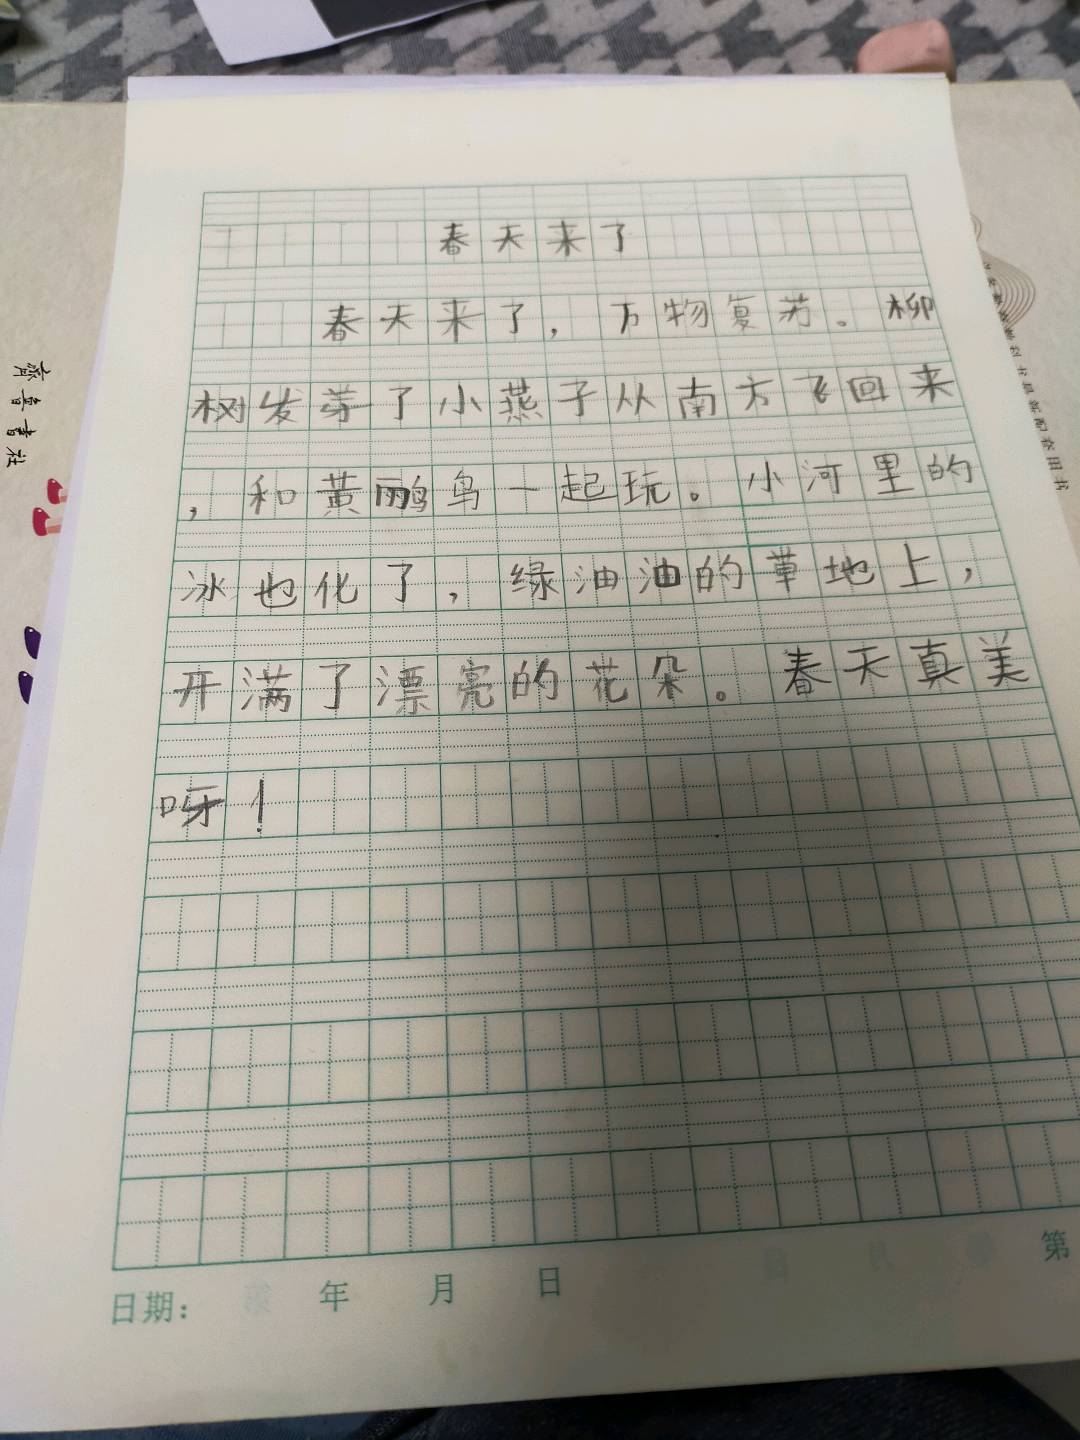 春天来了
春天来了，万物复苏。柳
树发芽了小燕子从南方飞回来
，和黄鹂鸟一起玩。小河里的
冰也化了，绿油油的草地上，
开满了漂亮的花朵。春天真美
呀！
日期： 年 月 日 第
齐鲁书社